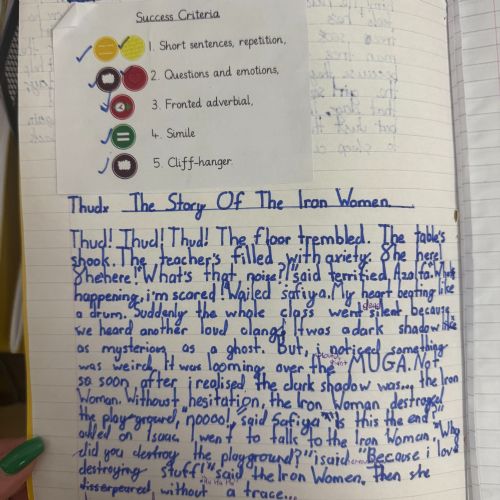 Success Criteria
1. Short sentences, repetition,
2. Questions and emotions,
3. Fronted adverbial,
4. Simile
5. Cliff-hanger.
Thudx The Story Of The Iron Women
Thud! Thud! Thud! The floor trembled. The table's
shook. The teacher's filled with axiety. She here!
Shehere! "What's that noise?" said terrified Azalfa. "Whats
happening, i'm scored! Wailed Safiya. My heart beating like
a drum. Suddenly the whole class went silent because
we heard another loud clang! It was a dark shadow like
as mysterion as a ghost. But, i noticed something
was weird. It was looming over the MUGA. Not
so soon after i realised the dark shadow was... the Iron
Woman. Without hesitation, the Iron Woman destroyed
the play ground, "noooo!," said Safiya "Is this the end?"
added on Isaac. I went to talls to the Iron Woman, "Why
did you destroy the playground?" i said "Because i love
destroying stuff!" said the Iron Women, then she
disserpeared without a trace...